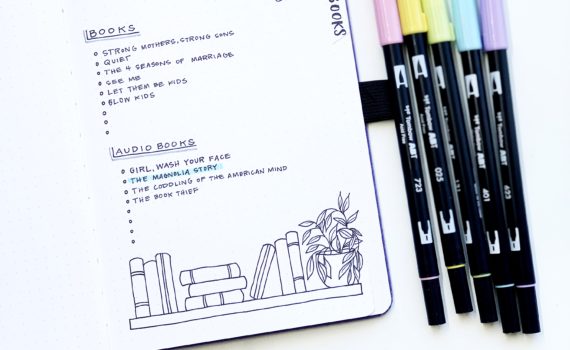 BOOKS
BOOKS
STRONG MOTHERS, STRONG SONS
QUIET
THE 4 SEASONS OF MARRIAGE
SEE ME
LET THEM BE KIDS
GLOW KIDS
AUDIO BOOKS
GIRL, WASH YOUR FACE
THE MAGNOLIA STORY
THE CODDLING OF THE AMERICAN MIND
THE BOOK THIEF
Tombow ART
723
Tombow ART
025
Tombow ART
Tombow ART
401
Tombow ART
623